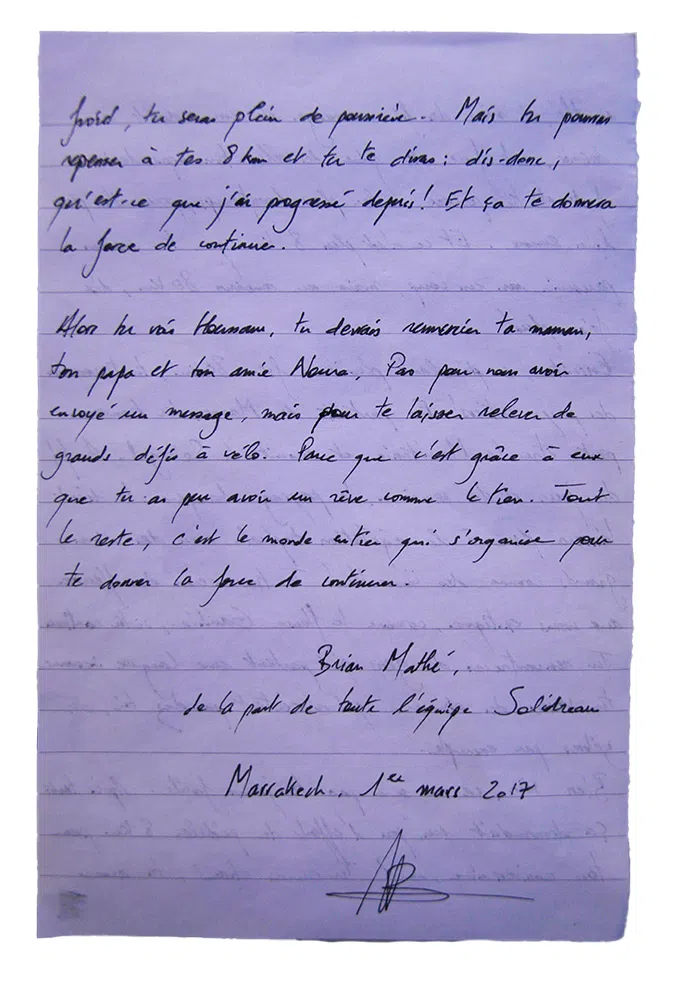 froid, tu seras plein de poussière.. Mais tu pourras
repenser à tes 8 km et tu te diras : dis-donc,
qu'est-ce que j'ai progressé depuis ! Et ça te donnera
la force de continuer.
Alors tu vois Houssam, tu devrais remercier ta maman,
ton papa et ton amie Noura. Pas pour nous avoir
envoyé un message, mais pour te laisser relever de
grands défis à vélo. Parce que c'est grâce à eux
que tu as pu avoir un rêve comme le tien. Tout
le reste, c'est le monde entier qui s'organise pour
te donner la force de continuer.
Brian Mathé,
de la part de toute l'équipe Solidreau
Marrakech, 1er mars 2017